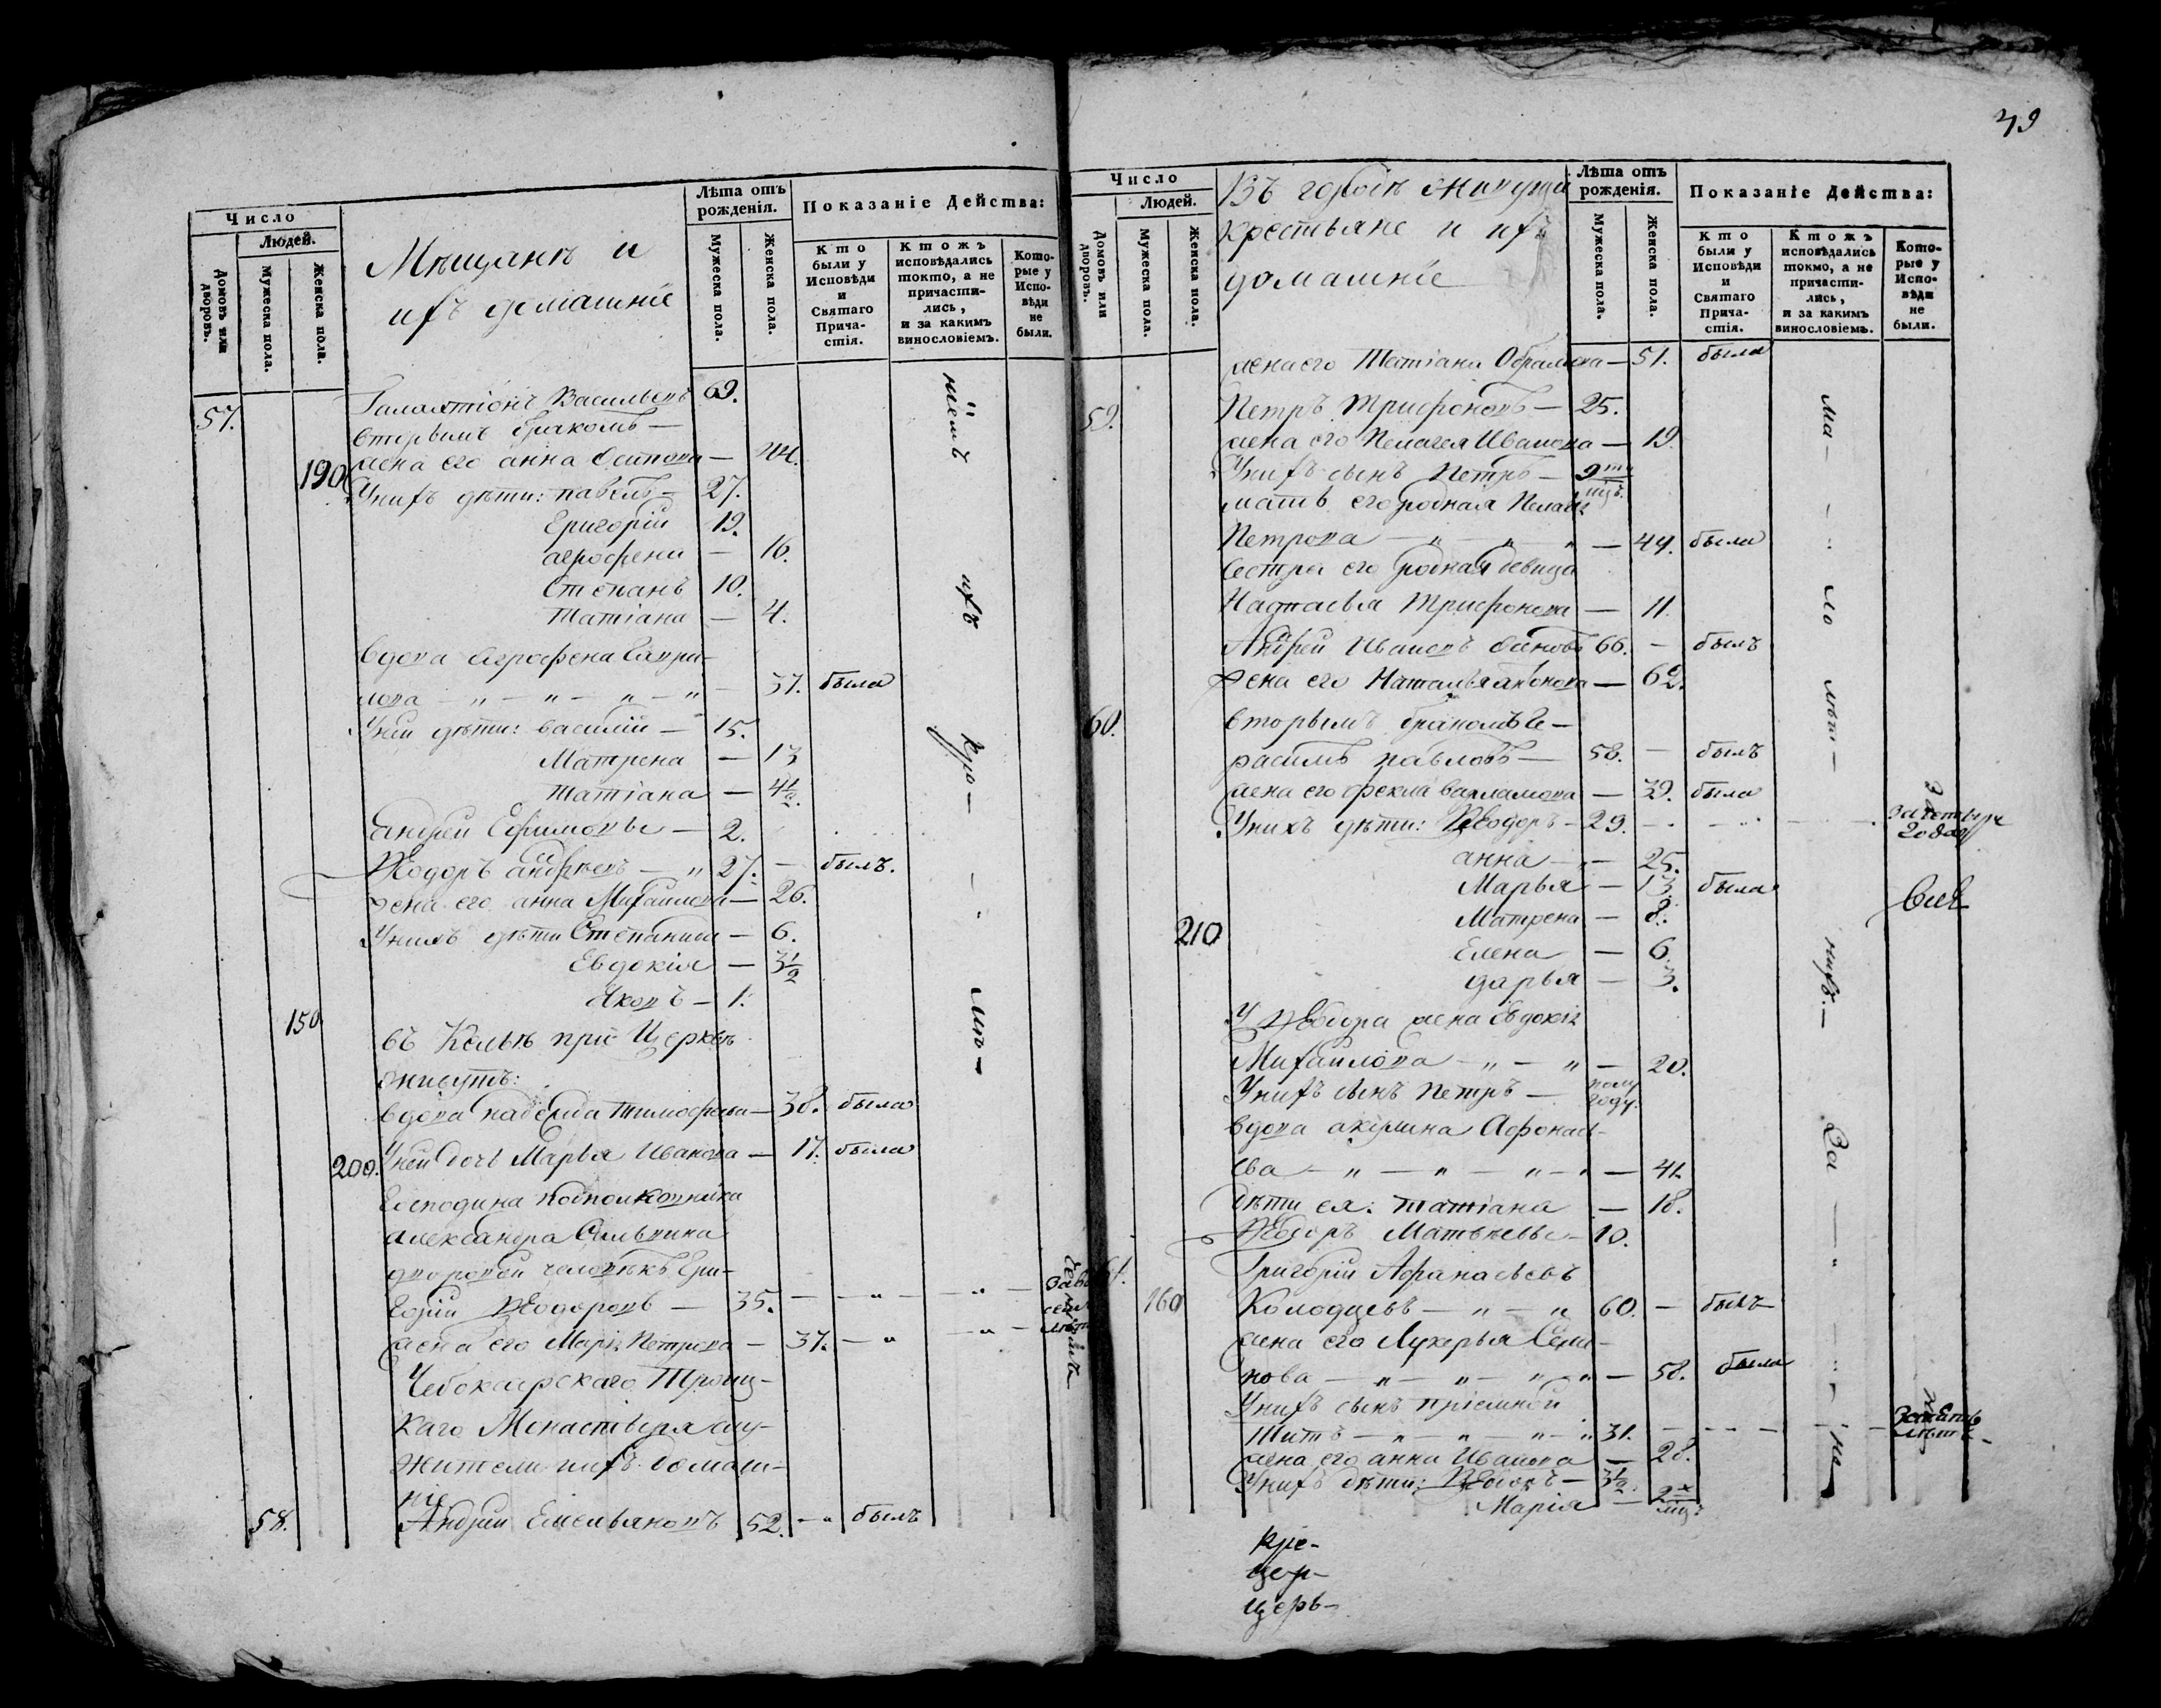 49
Число
Людей.
Домовъ или дворовъ.
Мужеска пола.
Женска пола.
Мѣщанѣ и
ихъ домашніе
Лѣта отъ рожденія.
Мужеска пола.
Женска пола.
Показаніе Действа:
Кто были у Исповѣди и Святаго Причастія.
Ктожъ исповѣдались токмо, а не причастились, и за какимъ винословіемъ.
Которые у Исповѣди не были.
57. Галактіонъ Васильевъ 69.
вторымъ бракомъ —
190 жена его анна Осипова — 44.
Унихъ дѣти: павелъ — 27.
Григорій 19.
агрофена — 16.
Степанъ 10.
Татіана — 4.
вдова Агрофена Гаври-
лова — „ — „ — „ — „ — 37. была
Уней дѣти: василій — 15.
Матрена — 13
Татіана — 4½.
андрей Ефимовъ — 2.
Ѳеодоръ андрѣевъ — „ 27. — былъ.
жена его анна Михаилова — 26.
Унихъ дѣти Степанида — 6.
Евдокія — 3½
150 Яковъ — 1.
въ Кельѣ при Церкви
живутъ:
вдова надежда Тимофѣева — 38. была
200. Уней дочь Марья Иванова — 17. была
Господина подполковника
александра
дворовой человѣкъ Гри-
горій Ѳеодоровъ — 35. — — „ — „ —
жена его Марія Петрова — 37. — „ — „ —
Чебоксарскаго Троиц-
каго Монастыря слу-
жители ихъ домаш-
ніе
58. Андрей Емельяновъ 52. — „ былъ
ніемъ
ихъ
Число
Людей.
Домовъ или дворовъ.
Мужеска пола.
Женска пола.
Въ городѣ живущіе
крестьяне и ихъ
домашніе
Лѣта отъ рожденія.
Мужеска пола.
Женска пола.
Показаніе Действа:
Кто были у Исповѣди и Святаго Причастія.
Ктожъ исповѣдались токмо, а не причастились, и за какимъ винословіемъ.
Которые у Исповѣди не были.
жена его Татіана Обрамова — 51. была
59. Петръ Трифоновъ — 25.
жена его Пелагея Иванова — 19.
Унихъ сынъ Петръ — 9ти мцъ.
мать его родная Пелагея
Петрова — „ — „ — „ — 44. была
Сестра его родная девица
Настасья Трифонова — 11.
Андрей Ивановъ 66. — былъ
жена его Наталья антонова — 62.
60. вторымъ бракомъ Ге-
расимъ павловъ — 58. — былъ
жена его фекла варламова — 39. была
Унихъ дѣти: Ѳеодоръ — 29. — — — зачетыре года
анна — „ — 25.
Марья — 13 была
210 Матрена — 8.
Елена — 6.
дарья — 3.
У Ѳеодора жена Евдокія
Михаилова — „ — „ — 20.
Унихъ сынъ петръ — полу году.
вдова акилина Афонась-
ева — „ — „ — „ — 41.
дѣти ея: татіана — 18.
Ѳеодоръ Матвѣевъ — 10.
61. Григорій Афанасьевъ
160 Колодцевъ — „ — „ 60. — былъ
жена его Лукерья Семе-
нова — „ — „ — „ — „ — 58. была
Унихъ сынъ пріемной
Титъ — „ — „ — „ — „ 31.
жена его анна Иванова — 28.
Унихъ дѣти: Ѳеодоръ — 3½.
Марія — 2х мцъ
ма —
ло
лѣт —
нихъ. —
За
кре-
цер-
церь-